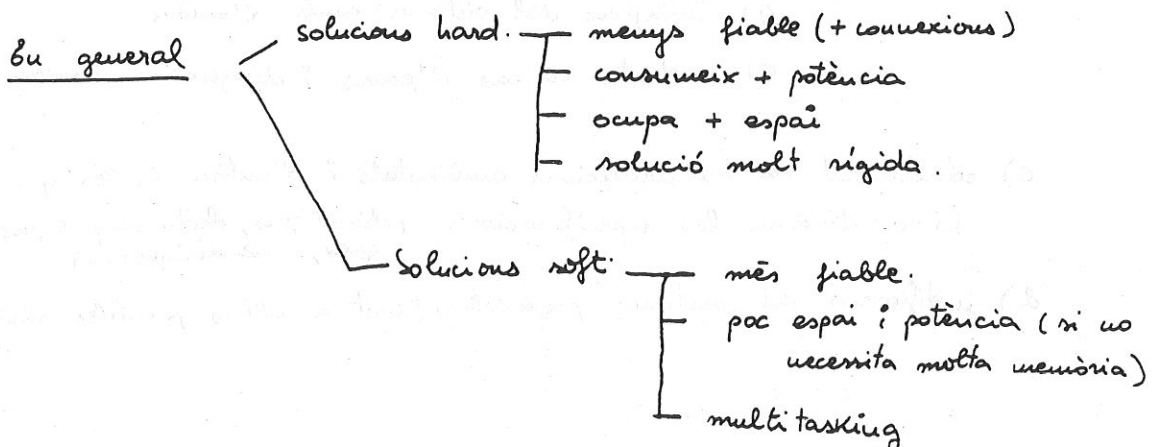 En general
solucions hard.
menys fiable (+ connexions)
consumeix + potència
ocupa + espai
solució molt rígida.
Solucions soft.
més fiable.
poc espai i potència (si no
necessita molta memòria)
multitasking